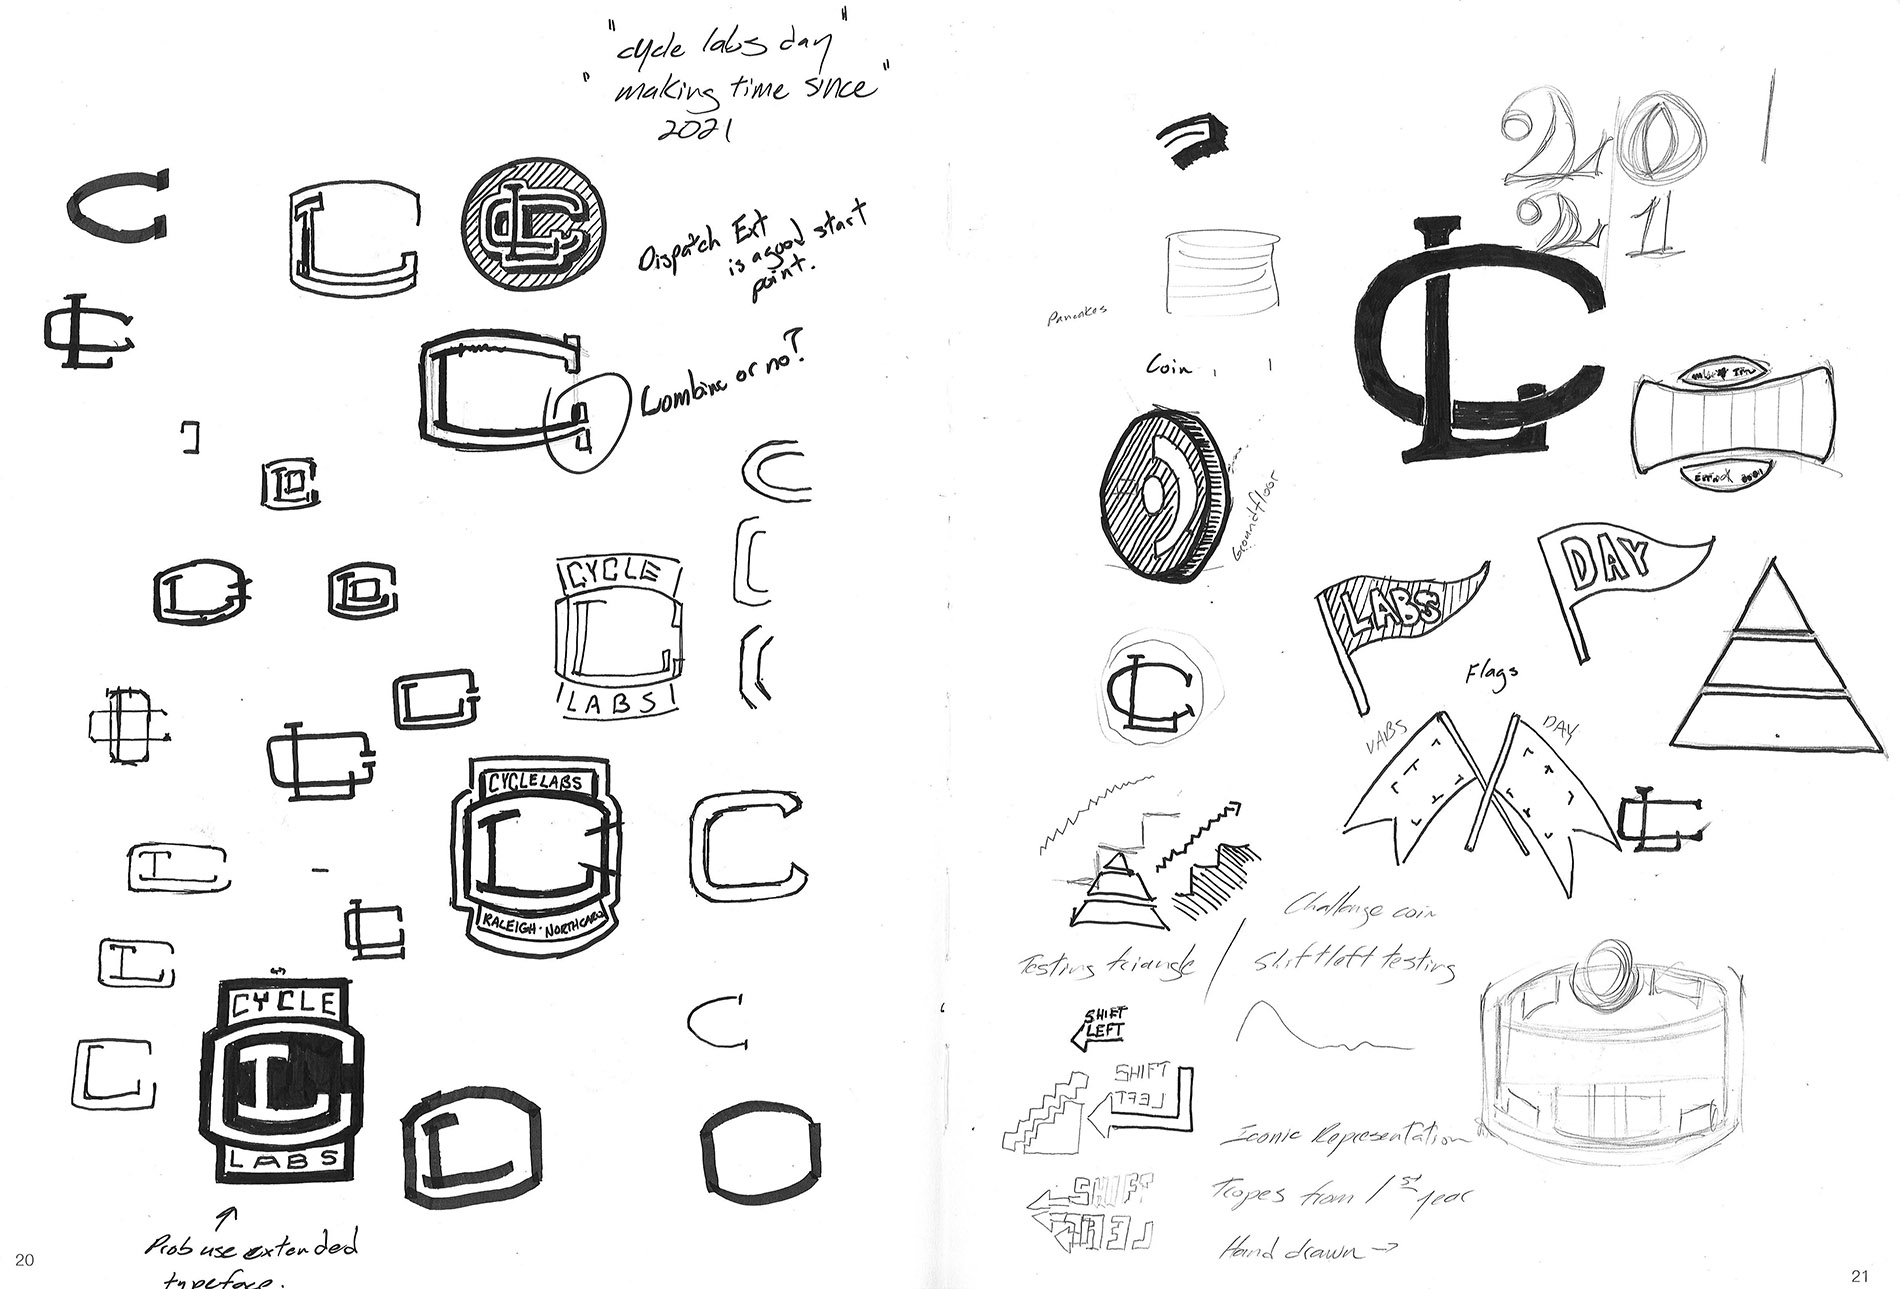 "cycle labs day"
"making time since"
2021
Dispatch Ext
is a good start
point.
Combine or no?
CYCLE
LABS
CYCLELABS
RALEIGH · NORTHCARO
CYCLE
LABS
Prob use extended
typeface.
20
20
21
Pancakes
Coin
Groundfloor
LABS
DAY
Flags
LABS
DAY
Challenge coin
Testing triangle / Shiftleft testing
SHIFT
LEFT
SHIFT
LEFT
SHIFT
LEFT
Iconic Representation
Tropes from 1st year
Hand drawn →
21